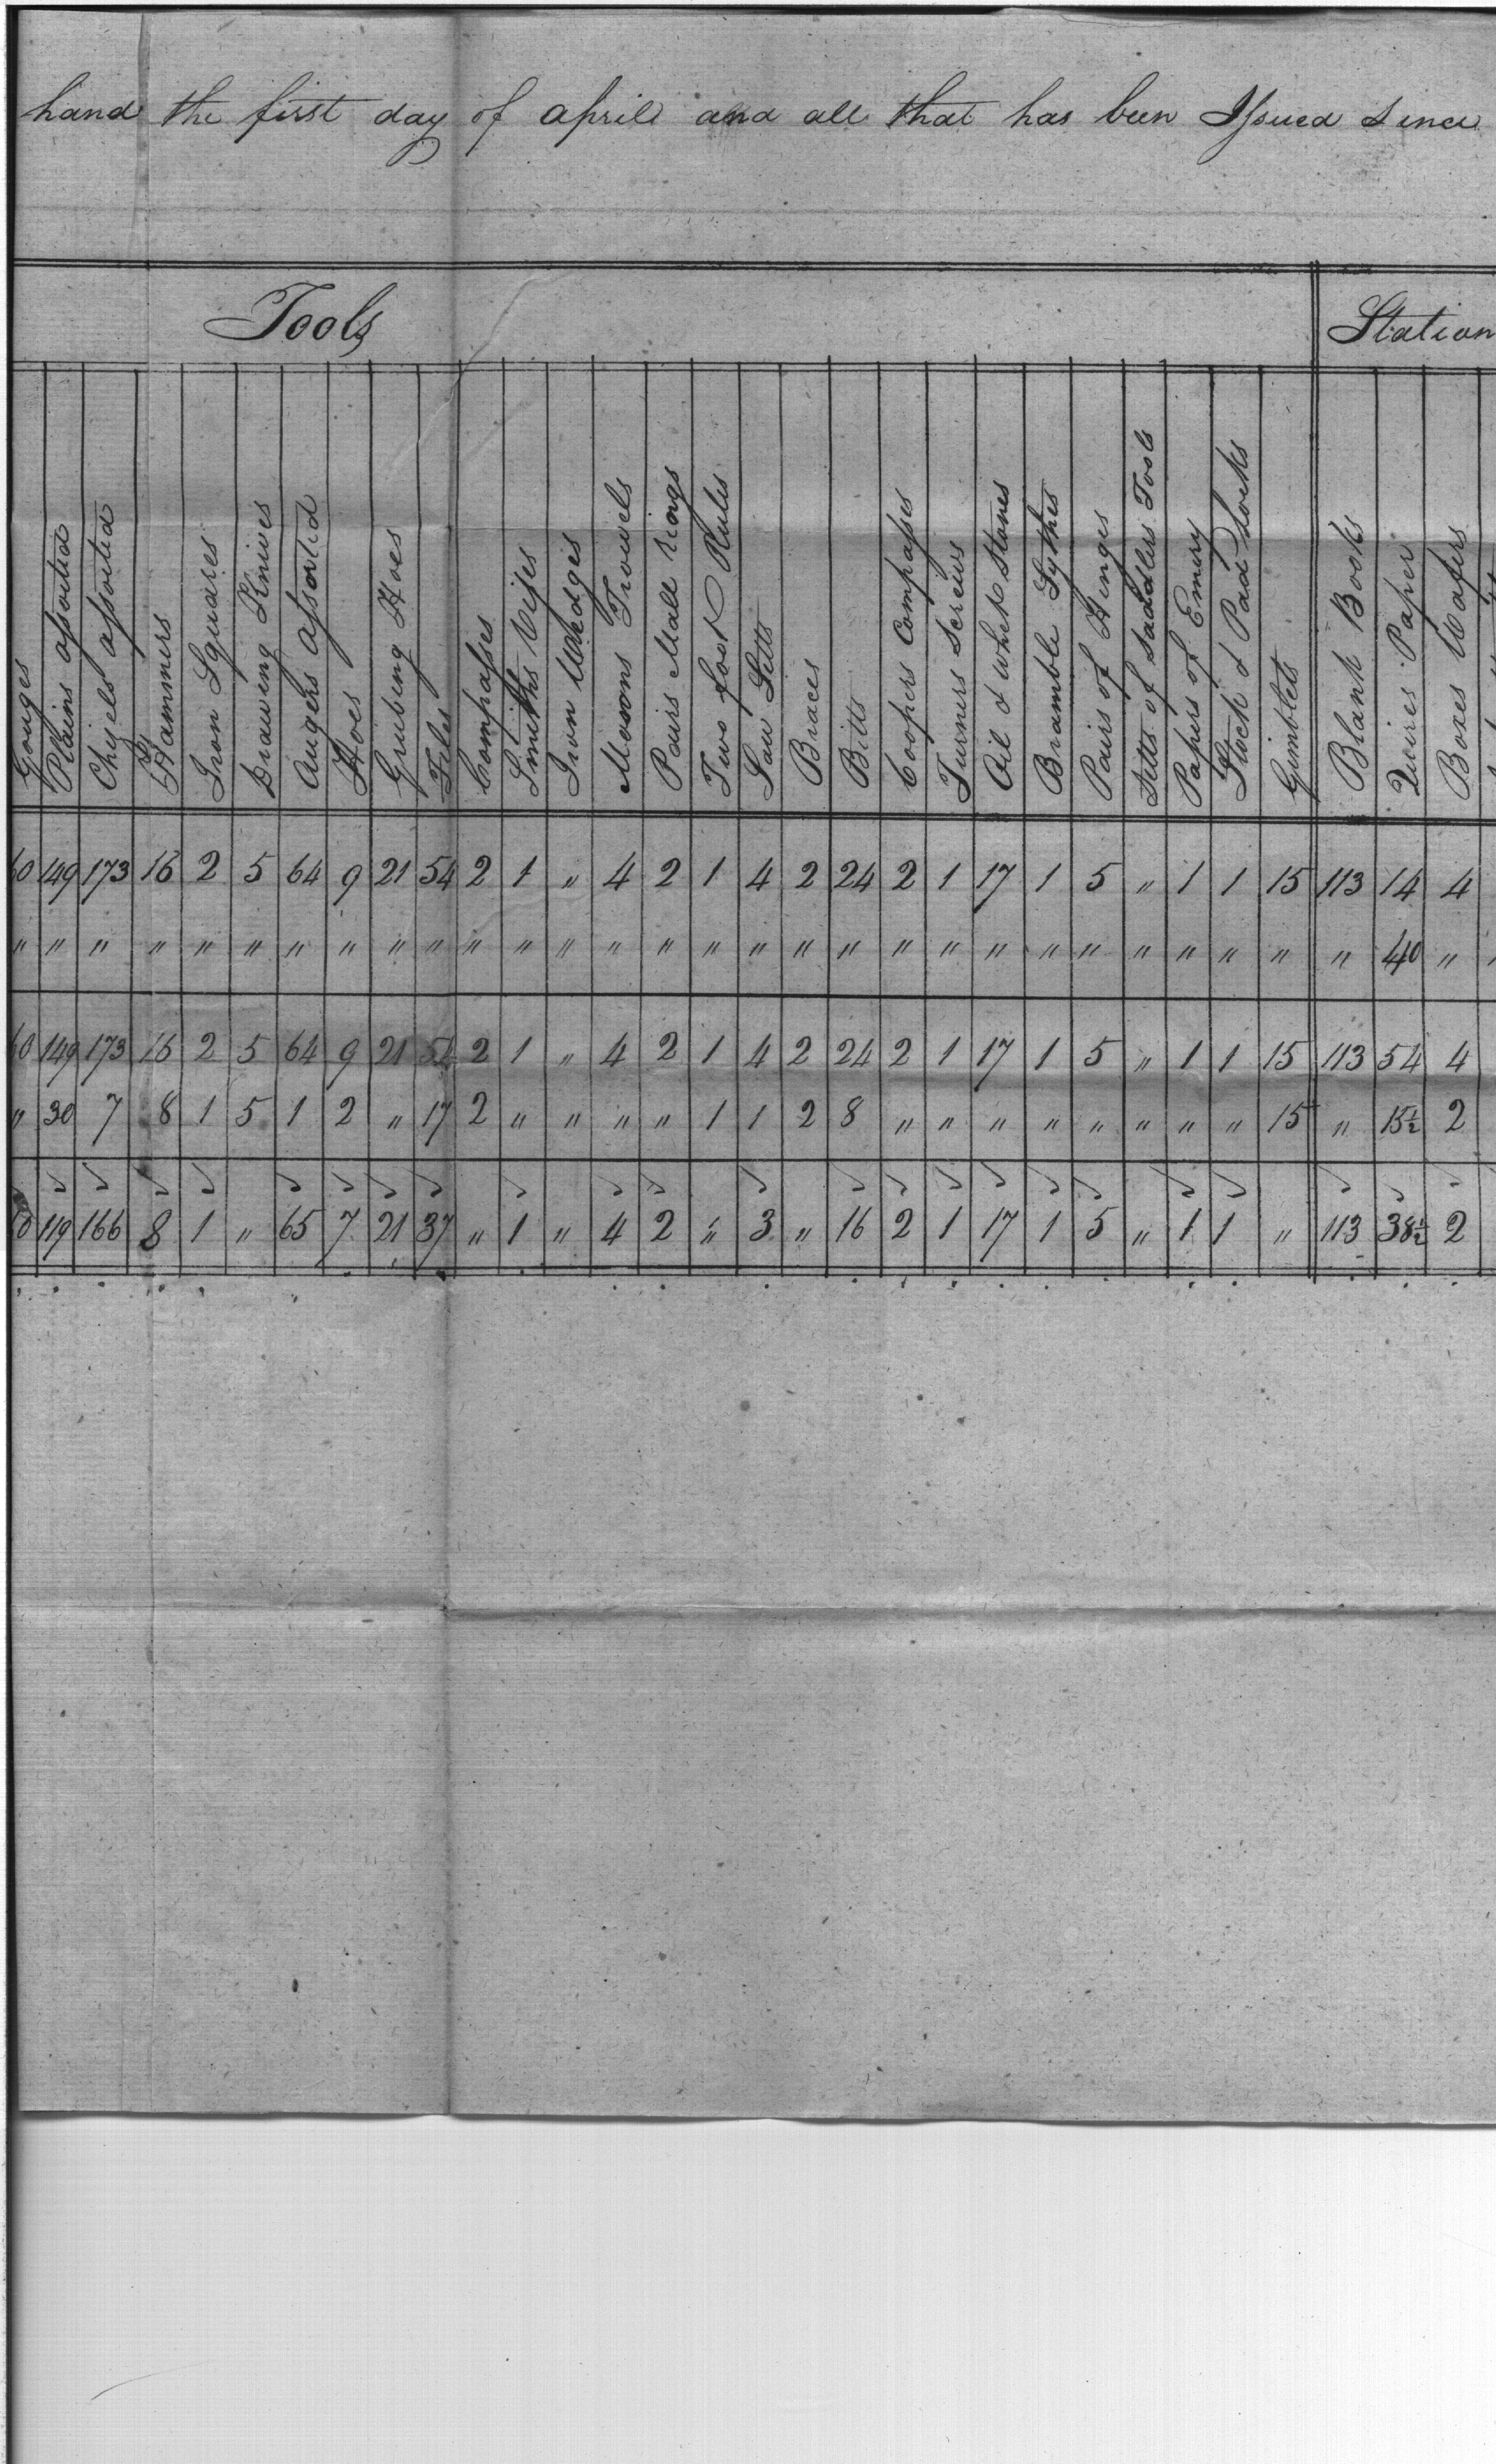 hand the first day of april and all that has been Issued Since
Tools Station
Gouges
Plains assorted
Chisels assorted
Hammers
Iron Squares
Drawing Knives
Augers assorted
Hoes
Grubing Hoes
Files
Compasses
Smiths Vises
Iron Wedges
Masons Trowels
Pairs Mall rings
Two foot Rules
Saw Setts
Braces
Bitts
Coopers Compasses
Turners Screws
Oil & whet Stones
Bramble Sythes
Pairs of Hinges
Setts of Saddlers Tools
Papers of Emery
Stock & Pad Locks
Gimblets
Blank Books
Quires Paper
Boxes Wafers
60 149 173 16 2 5 64 9 21 54 2 1 " 4 2 1 4 2 24 2 1 17 1 5 " 1 1 15 113 14 4
" " " " " " " " " " " " " " " " " " " " " " " " " " " " " 40 "
60 149 173 16 2 5 64 9 21 54 2 1 " 4 2 1 4 2 24 2 1 17 1 5 " 1 1 15 113 54 4
" 30 7 8 1 5 1 2 " 17 2 " " " " 1 1 2 8 " " " " " " " " 15 " 15½ 2
60 119 166 8 1 " 65 7 21 37 " 1 " 4 2 " 3 " 16 2 1 17 1 5 " 1 1 " 113 38½ 2